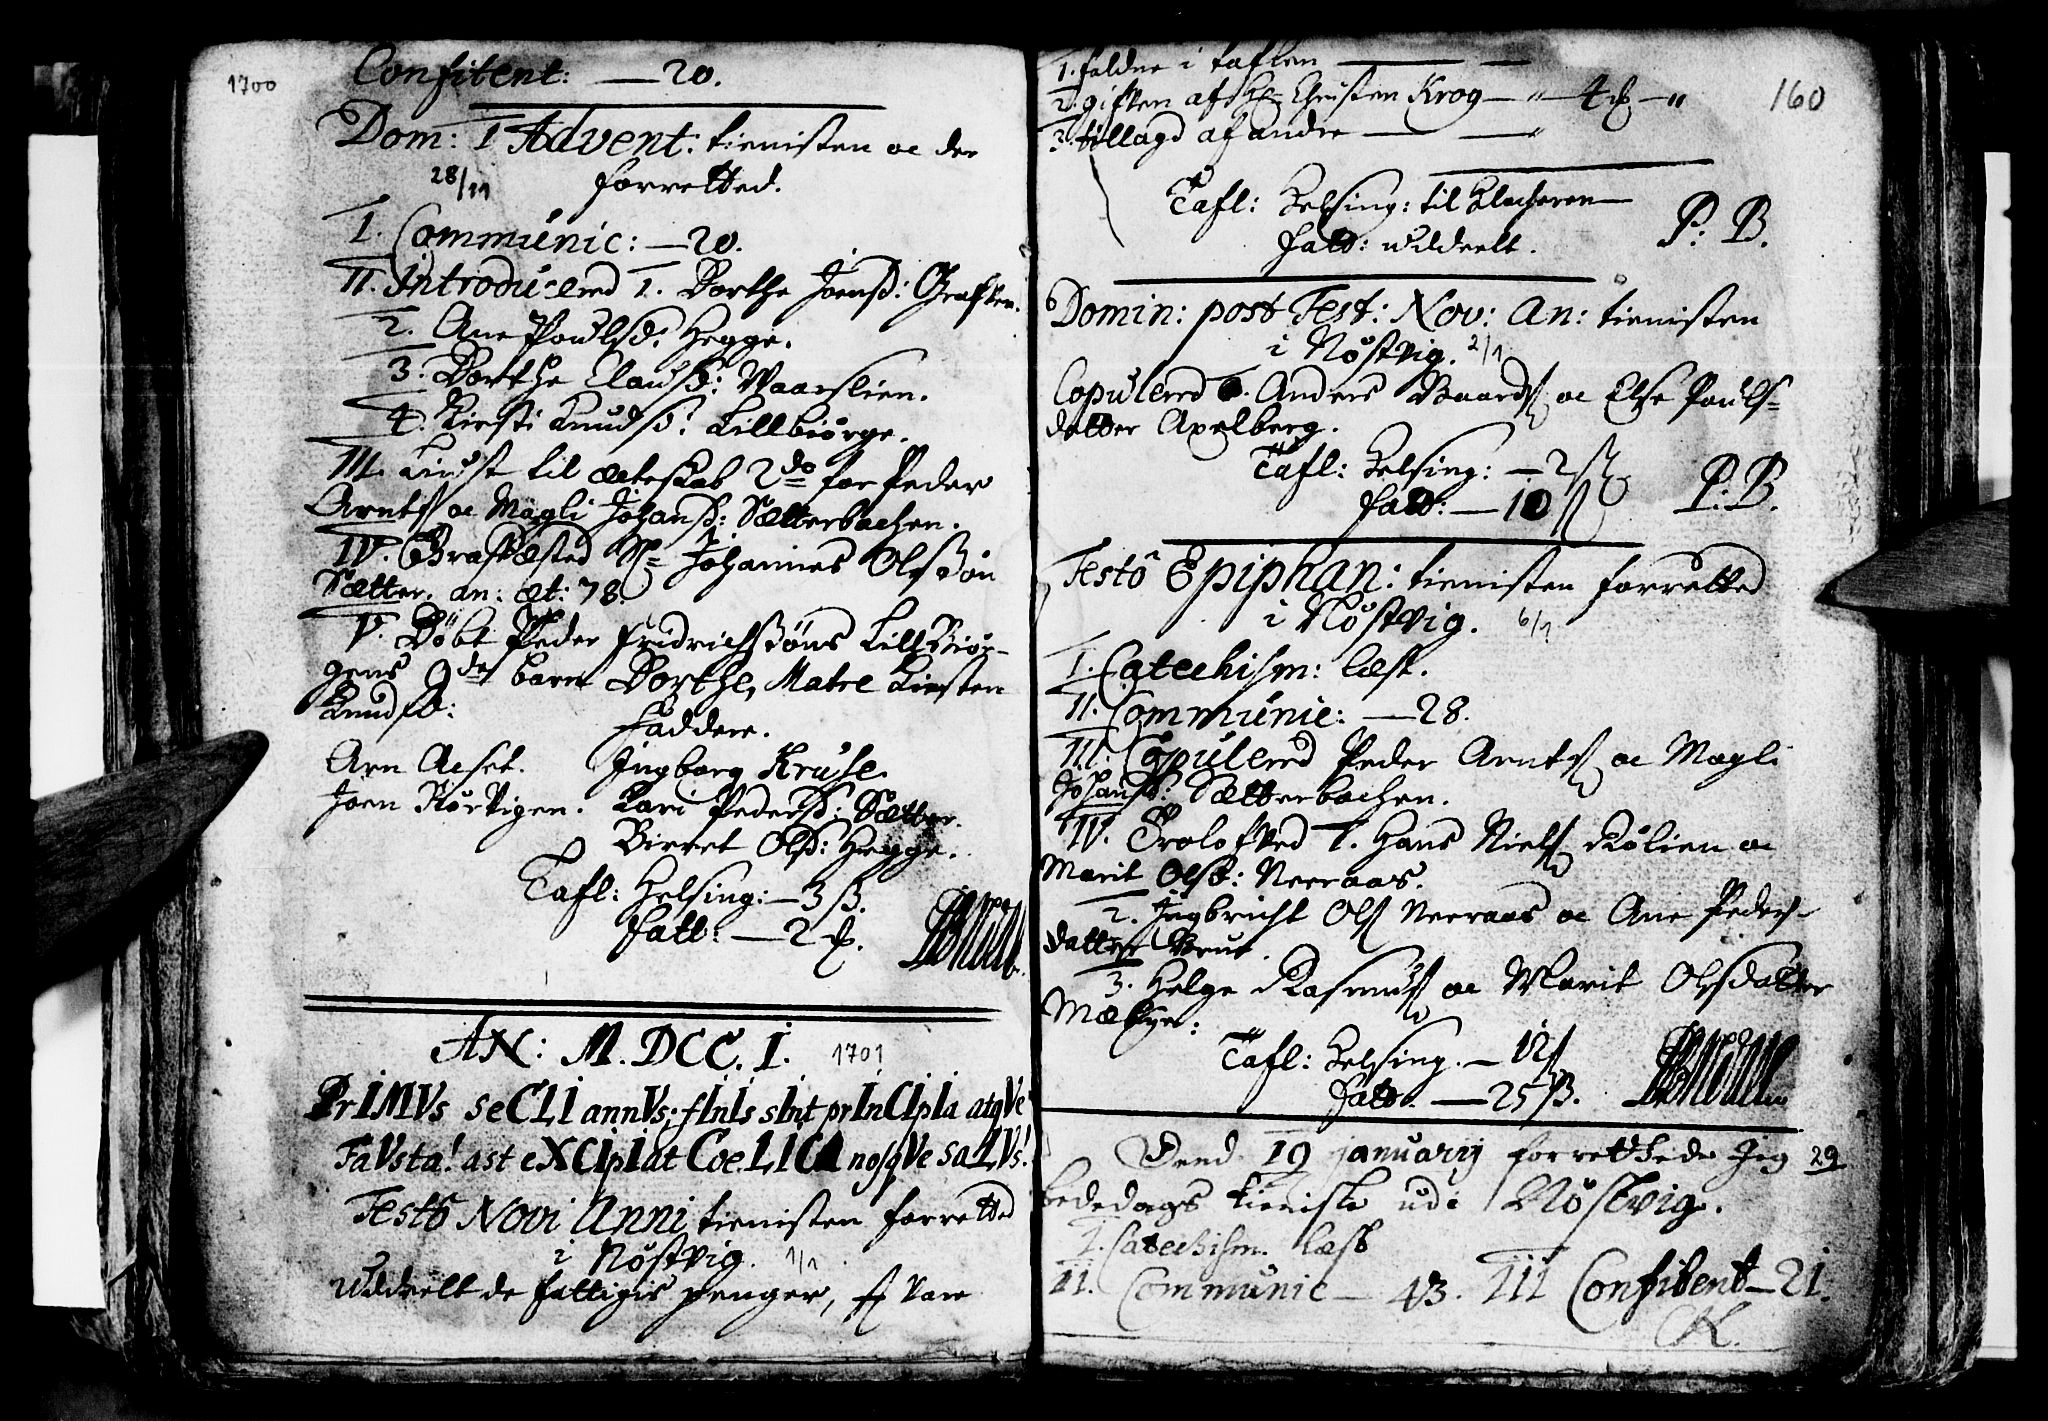 1700
Confitent: — 20.
Dom: I Advent: tienisten oc der
28/11 forretted.
I. Communic: — 20.
II. Introducered 1. Dorthe Joensd:
2. Ane Poulsd: Hegge.
3. Dorthe Clausd: Waarslien.
4. Kirsti Knudsd: Lillbiørge.
III. Liust til ecteskab 2do for Peder
Arnts oc Magli Johansd: Sætterbachen.
IV. Grafkæsted S= Johannes Olssøn
Sætter. an: æt: 78.
V. Døbt Peder Fridrichssøns Lillbiør-
gens barn Dorthe, Matre Kirsten
Knudsd:
Faddere.
Arn Aeset. Ingborg Kruse.
Joen Kørkigen. Kari Pedersd: Sætter.
Birret Olsd: Hegge.
Tafl: Helsing: — 3 ß.
Fatt: — 2
AN: M.DCC.I. 1701
PrIMVs seCLI annVs; fInIs sInt prInCIpIa atqVe
FaVsta! ast eXCIpIat CoeLICA nosqVe saLVs!
Festô Novi Anni tienisten forretted
i Nøstvig. 1/1
Uddeelt de fattigis penger, som vare
1. faldne i taflen —— —
2. giften af Hr Christen Krog — " — 4 — "
3. tillagd af andre —— — "
160
Tafl: Helsing: til Klocheren —
Fatt: uddeelt. P: B.
Domin: post Fest: Nov: An: tienisten
i Nøstvig. 2/1
Copulered Anders Baards oc Else Pouls=
datter Axelberg.
Tafl: Helsing: — 2 ß
Fatt: — 10 ß P: B.
Festô Epiphan: tienisten forretted
i Nøstvig. 6/1
I. Catechism: læst.
II. Communic: — 28.
III. Copulered Peder Arnts oc Magli
Johansd: Sætterbachen.
IV. Trolofved 1. Hans Niels Rølien oc
Marit Olsd: Neeraas.
2. Ingbricht Ols Neeraas oc Ane Peders-
datter
3. Helge Rasmus oc Marit Olsdatter
Tafl: Helsing. — 12 ß
Fatt. — 25 ß.
Dend 19 january forrettede Jeg 29
bededags tieniste udi Nøstvig.
I. Catechism. læst
II. Communic — 43. III Confitent — 21.